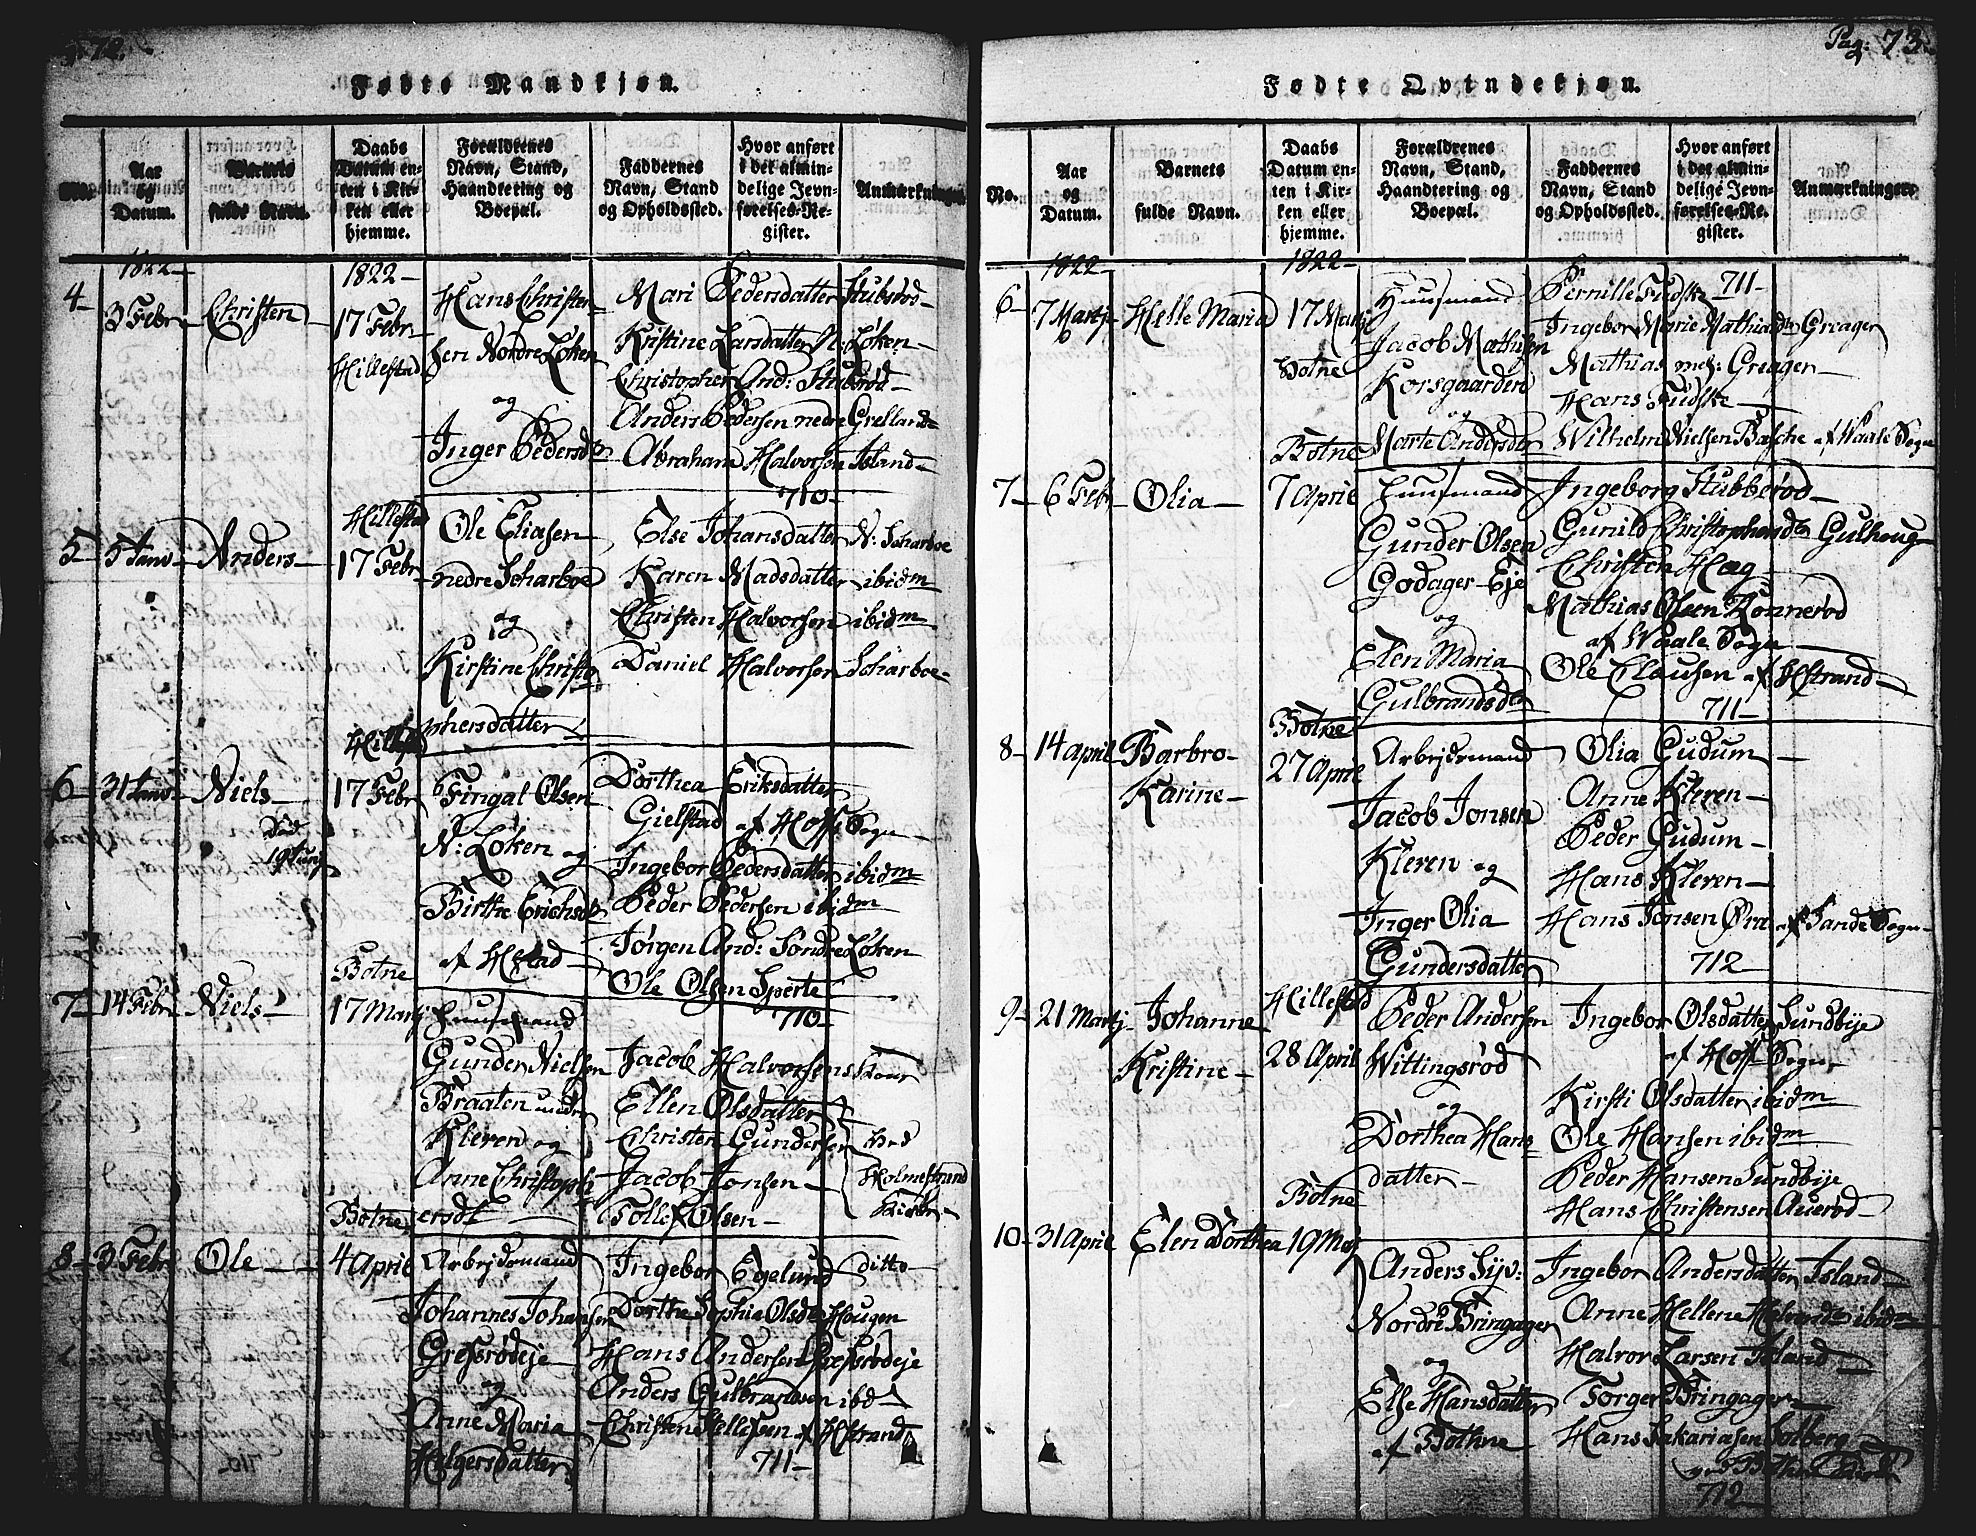 72.
Fødte Mandkjøn.
No.
Aar og Datum.
Barnets fulde Navn.
Daabs Datum enten i Kirken eller hjemme.
Forældrenes Navn, Stand, Haandtering og Boepæl.
Faddernes Navn, Stand og Opholdssted.
Hvor anført i det almindelige Jevnførelses-Register.
Anmærkninger.
1822
1822
4
3 Febr
Christen
17 Febr
Hillestad
Hans Christen-
sen Nordre Løken
og
Inger Pedersdr
Mari Pedersdatter Stubsrød
Kristine Larsdatter N: Løken
Christopher And: Stubsrød
Anders Pedersen nedre Grelland
Abraham Halvorsen Island
710
5
5 Janv
Anders
Hillestad
17 Febr
Ole Eliasen
nedre Scharboe
og
Kirstine Christo-
phersdatter
Else Johansdatter N: Scharboe
Karen Madsdatter ibidm
Christen Halvorsen ibidm
Daniel Halvorsen Scharboe
6
31 Janv
Niels
Død
19 Junj
Hillest
17 Febr
Fingal Olsen
N: Løken og
Birthe Erichsdr
af Hstad
Dorthea Eriksdatter
Gielstad af Hoffs Sogn
Ingebor Pedersdatter ibidm
Peder Pedersen ibidm
Jørgen And: Søndre Løken
Ole Olsen Sperte
710
7
14 Febr
Niels
Botne
17 Martj
Huusmand
Gunder Nielsen
Braaten under
Kleren og
Anne Christoph
ersdt
Jacob Halvorsen Skour
Ellen Olsdatter
Christen Gundersen
Jacob Jonsen
Tollef Olsen
ved
Holmestrand
8
3 Febr
Ole
Botne
4 April
Arbejdsmand
Johannes Johansen
Gressrødeje
og
Anne Maria
Helgersdatter
Ingebor Egelund
Ditto
Dorthe Sophia Olsdr Hougen
Hans Andersen Gressrødeje
Anders Gulbrandsen ibd
Christen Stellesen af Hstrand
711
Pag: 73.
Fødte Qvindekjøn.
No.
Aar og Datum.
Barnets fulde Navn.
Daabs Datum enten i Kirken eller hjemme.
Forældrenes Navn, Stand, Haandtering og Boepæl.
Faddernes Navn, Stand og Opholdssted.
Hvor anført i det almindelige Jevnførelses-Register.
Anmærkninger.
1822
1822
6
7 Martj
Helle Maria
17 Martj
Botne
Huusmand
Jacob Mathisen
Korsgaarden
og
Marte Andersdr
Pernille Fudske
711
Ingebor Marie Mathiasdr Greager
Mathias ms: Greager
Hans Fudske
Wilhelm Nielsen Basche af Waale Sogn
7
6 Febr
Olia
Botne
7 April
Huusmand
Gunder Olsen
Godager Eje
og
Elen Maria
Gulbrandsdr
Ingeborg Stubberød
Gunild Christophersdr Gulhoug
Christen Hag
Mathias Olsen Konnerød
af Waale Sogn
Ole Clausen af Hstrand
711
8
14 April
Barbro
Karine
Botne
27 April
Arbejdsmand
Jacob Jonsen
Kleren og
Inger Olia
Gundersdatter
Olia Gudum
Anne Kleren
Peder Gudum
Hans Kleren
Hans Jensen Øra af Sande Sogn
712
9
21 Martj
Johanne
Kristine
Hillestad
28 April
Peder Andersen
Wittingsrød
og
Dorthea Hans-
datter
Ingebor Olsdatter Sundbye
af Hoffs Sogn
Kirsti Olsdatter ibidm
Ole Hansen ibidm
Peder Hansen Sundbye
Hans Christensen Auerød
10
31 April
Elen Dorthea
Botne
19 Maj
Anders Syv:
Nordre Bringager
og
Else Hansdatter
af Bothne
Ingebor Andersdatter Island
Anne Hellene Halvordr ibidm
Halvor Larsen Island
Torger Bringager
Hans Sakariasen Solberg
712